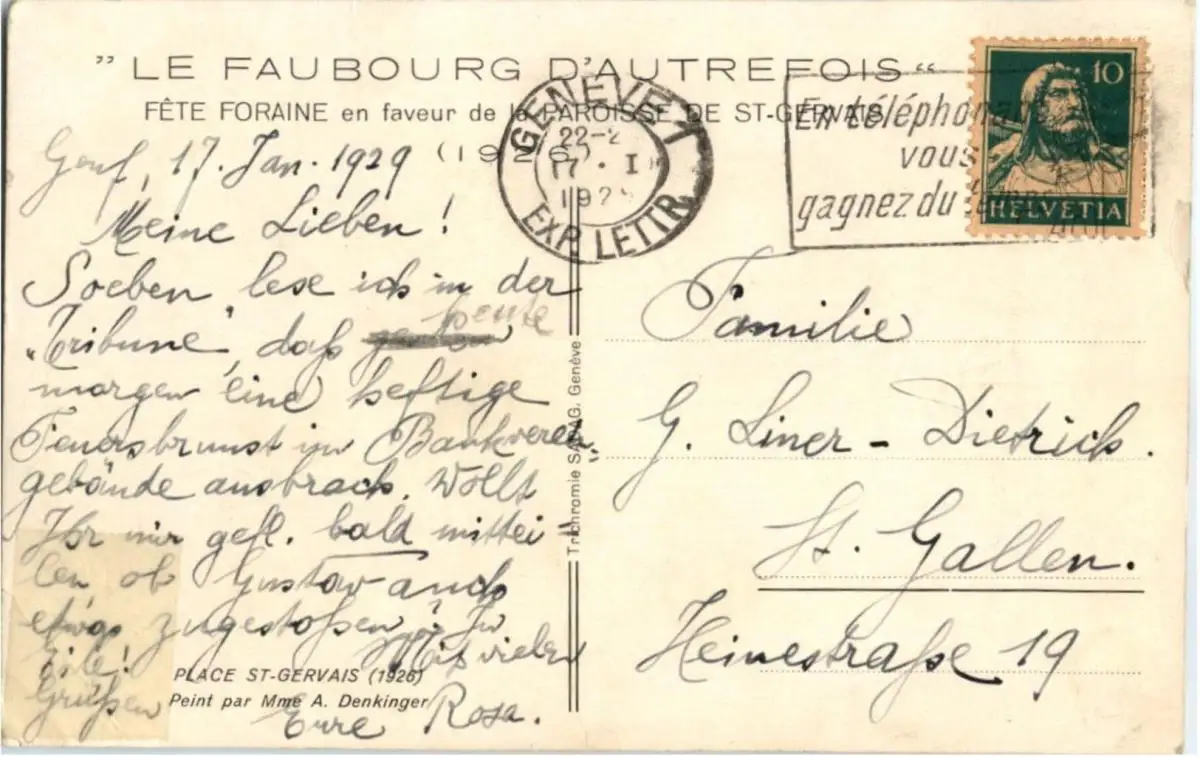 " LE FAUBOURG D'AUTREFOIS "
FÊTE FORAINE en faveur de la PAROISSE DE ST-GERVAIS
(1926)
GENÈVE 1
22-2
17. I
192
EXP. LETTR.
En téléphonant
vous
gagnez du
10
HELVETIA
Genf, 17. Jan. 1929
Meine Lieben!
Soeben lese ich in der
„Tribune", daß heute
morgen eine heftige
Feuersbrunst im Bankverein
gebäude ausbrach. Wollt
Ihr mir gefl. bald mittei
len ob Gustav auch
etwas zugestoßen? In
Eile!
Mit vielen
Grüßen
Eure Rosa.
PLACE ST-GERVAIS (1926)
Peint par Mme A. Denkinger
Trichromie SADAG, Genève
Familie
G. Liner - Dietrich.
St. Gallen.
Heinestraße 19